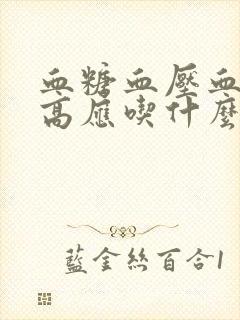 血糖血壓血
高應喫什麼
藍金絲百合1